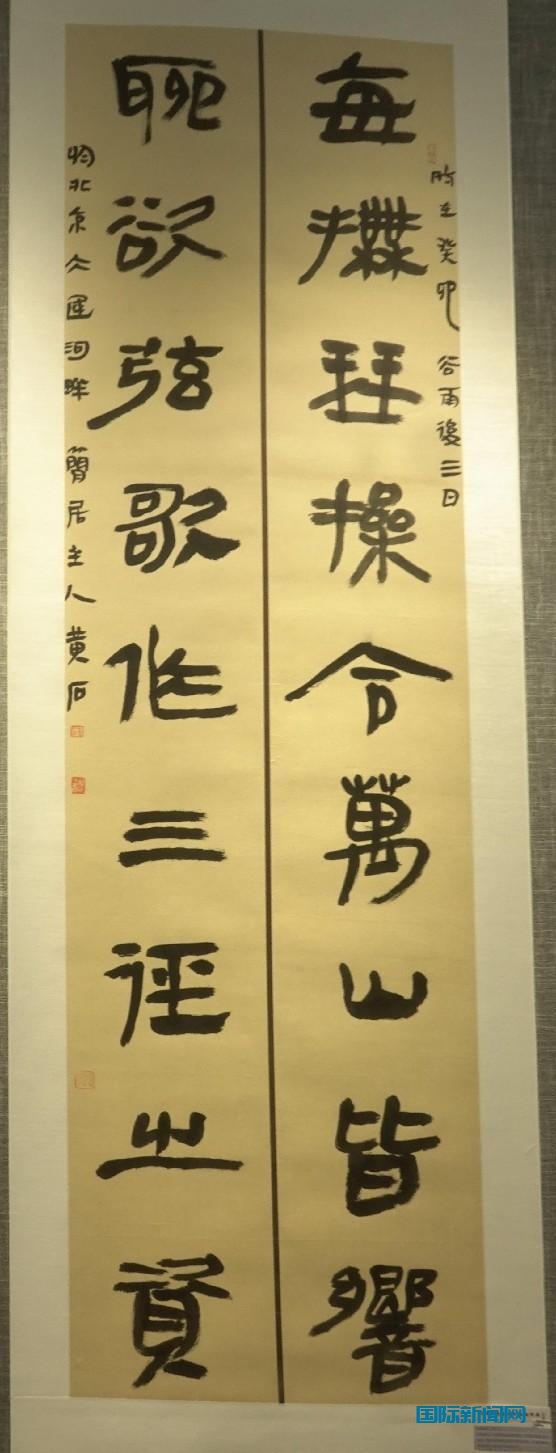 時在癸卯 谷雨後三日
每撫琴操令萬山皆響
聊欲弦歌作三徑之資
於北京大運河畔 簡居主人黃石
国际新闻网